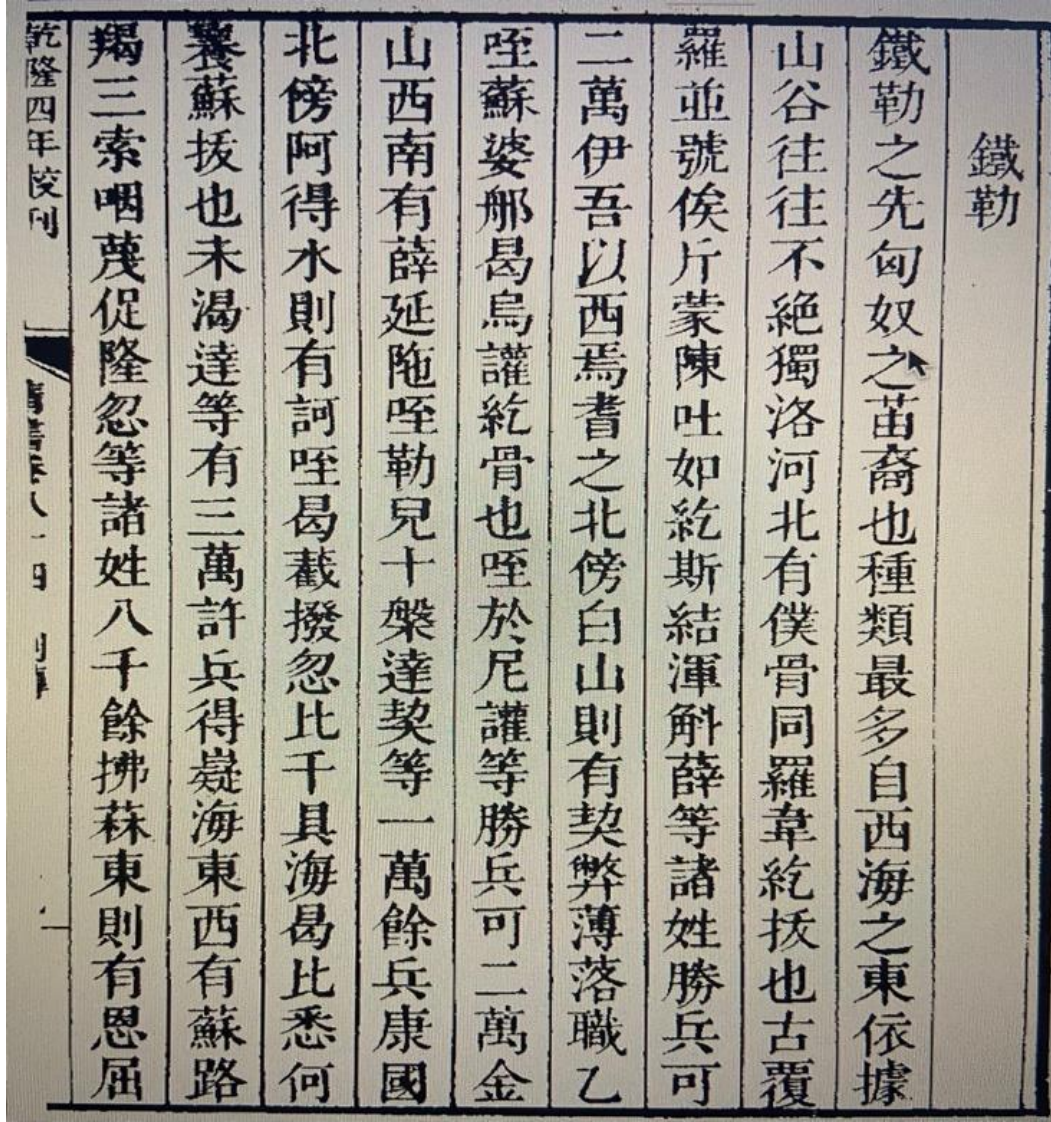 鐵勒
鐵勒之先匈奴之苗裔也種類最多自西海之東依據
山谷往往不絕獨洛河北有僕骨同羅韋紇拔也古覆
羅並號俟斤蒙陳吐如紇斯結渾斛薛等諸姓勝兵可
二萬伊吾以西焉耆之北傍白山則有契弊薄落職乙
咥蘇婆那曷烏讙紇骨也咥於尼讙等勝兵可二萬金
山西南有薛延陁咥勒兒十槃達契等一萬餘兵康國
北傍阿得水則有訶咥曷截撥忽比千具海曷比悉何
嵏蘇拔也未渴達等有三萬許兵得嶷海東西有蘇路
羯三索咽蔑促隆忽等諸姓八千餘拂菻東則有恩屈
乾隆四年校刊
隋書卷八十四 列傳